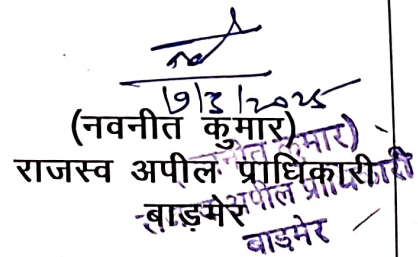 19/3/2025
(नवनीत कुमार)
राजस्व अपील प्राधिकारी
बाड़मेर
(नवनीत कुमार)
राजस्व अपील प्राधिकारी
बाड़मेर